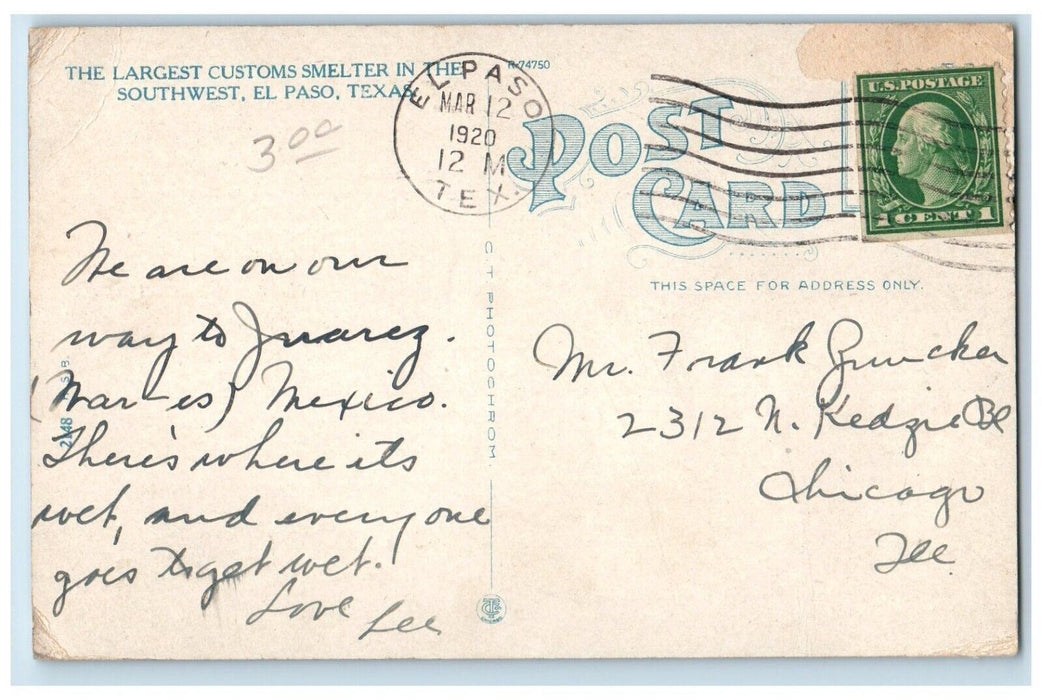 THE LARGEST CUSTOMS SMELTER IN THE
SOUTHWEST, EL PASO, TEXAS
R-74750
3 00
EL PASO
MAR 12
1920
12 M
TEX.
POST
CARD
U.S. POSTAGE
1 CENT 1
THIS SPACE FOR ADDRESS ONLY.
C T PHOTOCHROM
We are on our
way to Juarez.
(War-es) Mexico.
There's where its
wet, and every one
goes to get wet.
Love Lee
Mr. Frank
2312 N. Kedzie Bl
Chicago
Ill